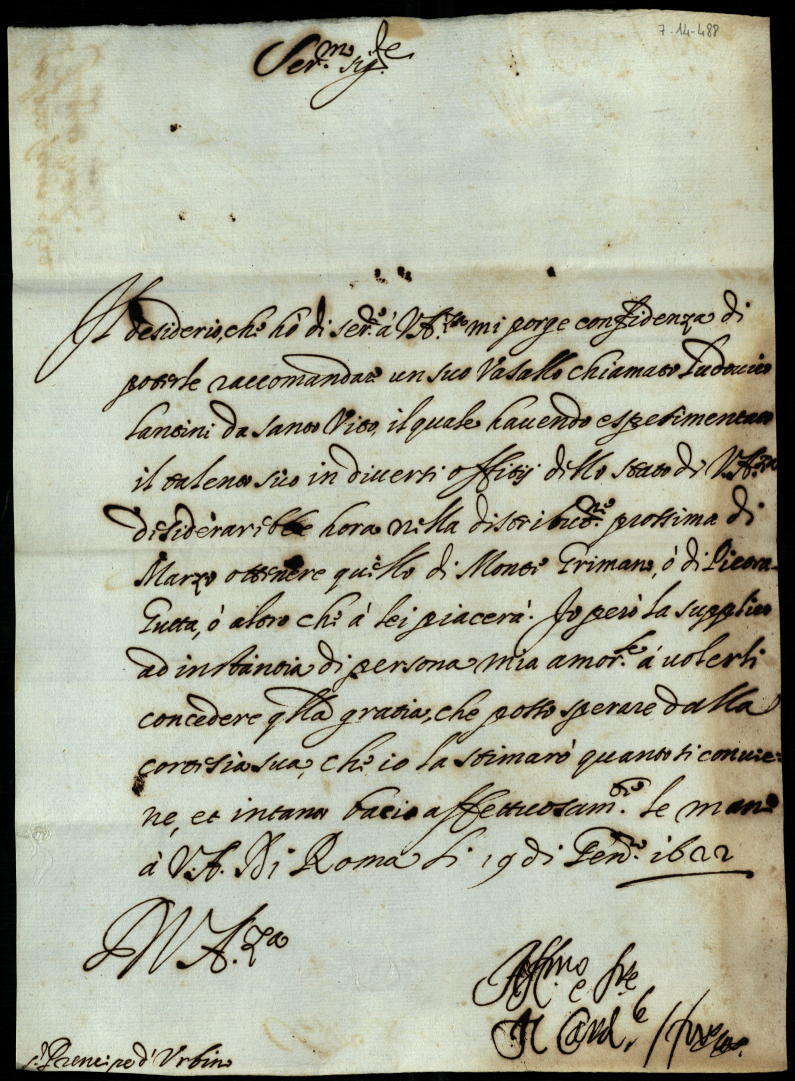 7-14-488
Ser.mo sig.re
Il desiderio, che hò di ser.e à V.A.za mi porge confidenza di
poterle raccomandare un suo Vasallo chiamato Ludovico
Lantini da Santo Vito, il quale havendo esperimentato
il talento suo in diversi offitij dello stato di V.A.za
desiderarebbe hora nella distribut.ne prossima di
Marzo ottenere quello di Monte Grimano, ò di Pietra-
Gutta, ò altro che à lei piacerà. Io però la supplico
ad instantia di persona mia amor.le à volerli
concedere q.lla gratia, che posso sperare dalla
cortesia sua, che io la stimarò quanto si convie=
ne, et intanto bacio affettuosam.te le mano
à V.A. Di Roma li 19 di Gen.ro 1622
D V A.za
Aff.mo
e s.re
Il Card.le
s.r Prencipe d'Urbino